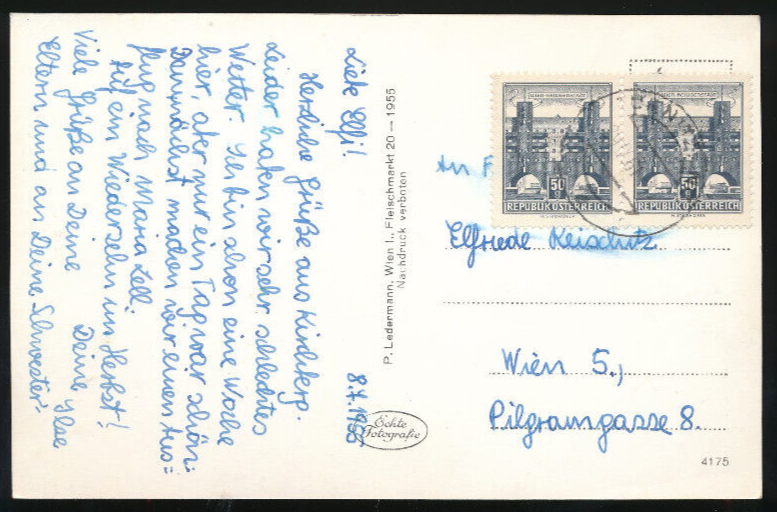 8.7.1966
Liebe Elfi!
Herzliche Grüße aus Kirchberg.
Leider haben wir sehr schlechtes
Wetter. Ich bin schon eine Woche
hier, aber nur ein Tag war schön.
Demnächst machen wir einen Aus=
flug nach Maria Zell.
Auf ein Wiedersehn im Herbst!
Viele Grüße an Deine
Deine Ilse
Eltern und an Deine Schwester.
P. Ledermann, Wien I., Fleischmarkt 20 — 1955
Nachdruck verboten
Echte
Fotografie
50 g
REPUBLIK ÖSTERREICH
50 g
REPUBLIK ÖSTERREICH
An F
Elfriede
Wien 5.,
Pilgramgasse 8.
4175